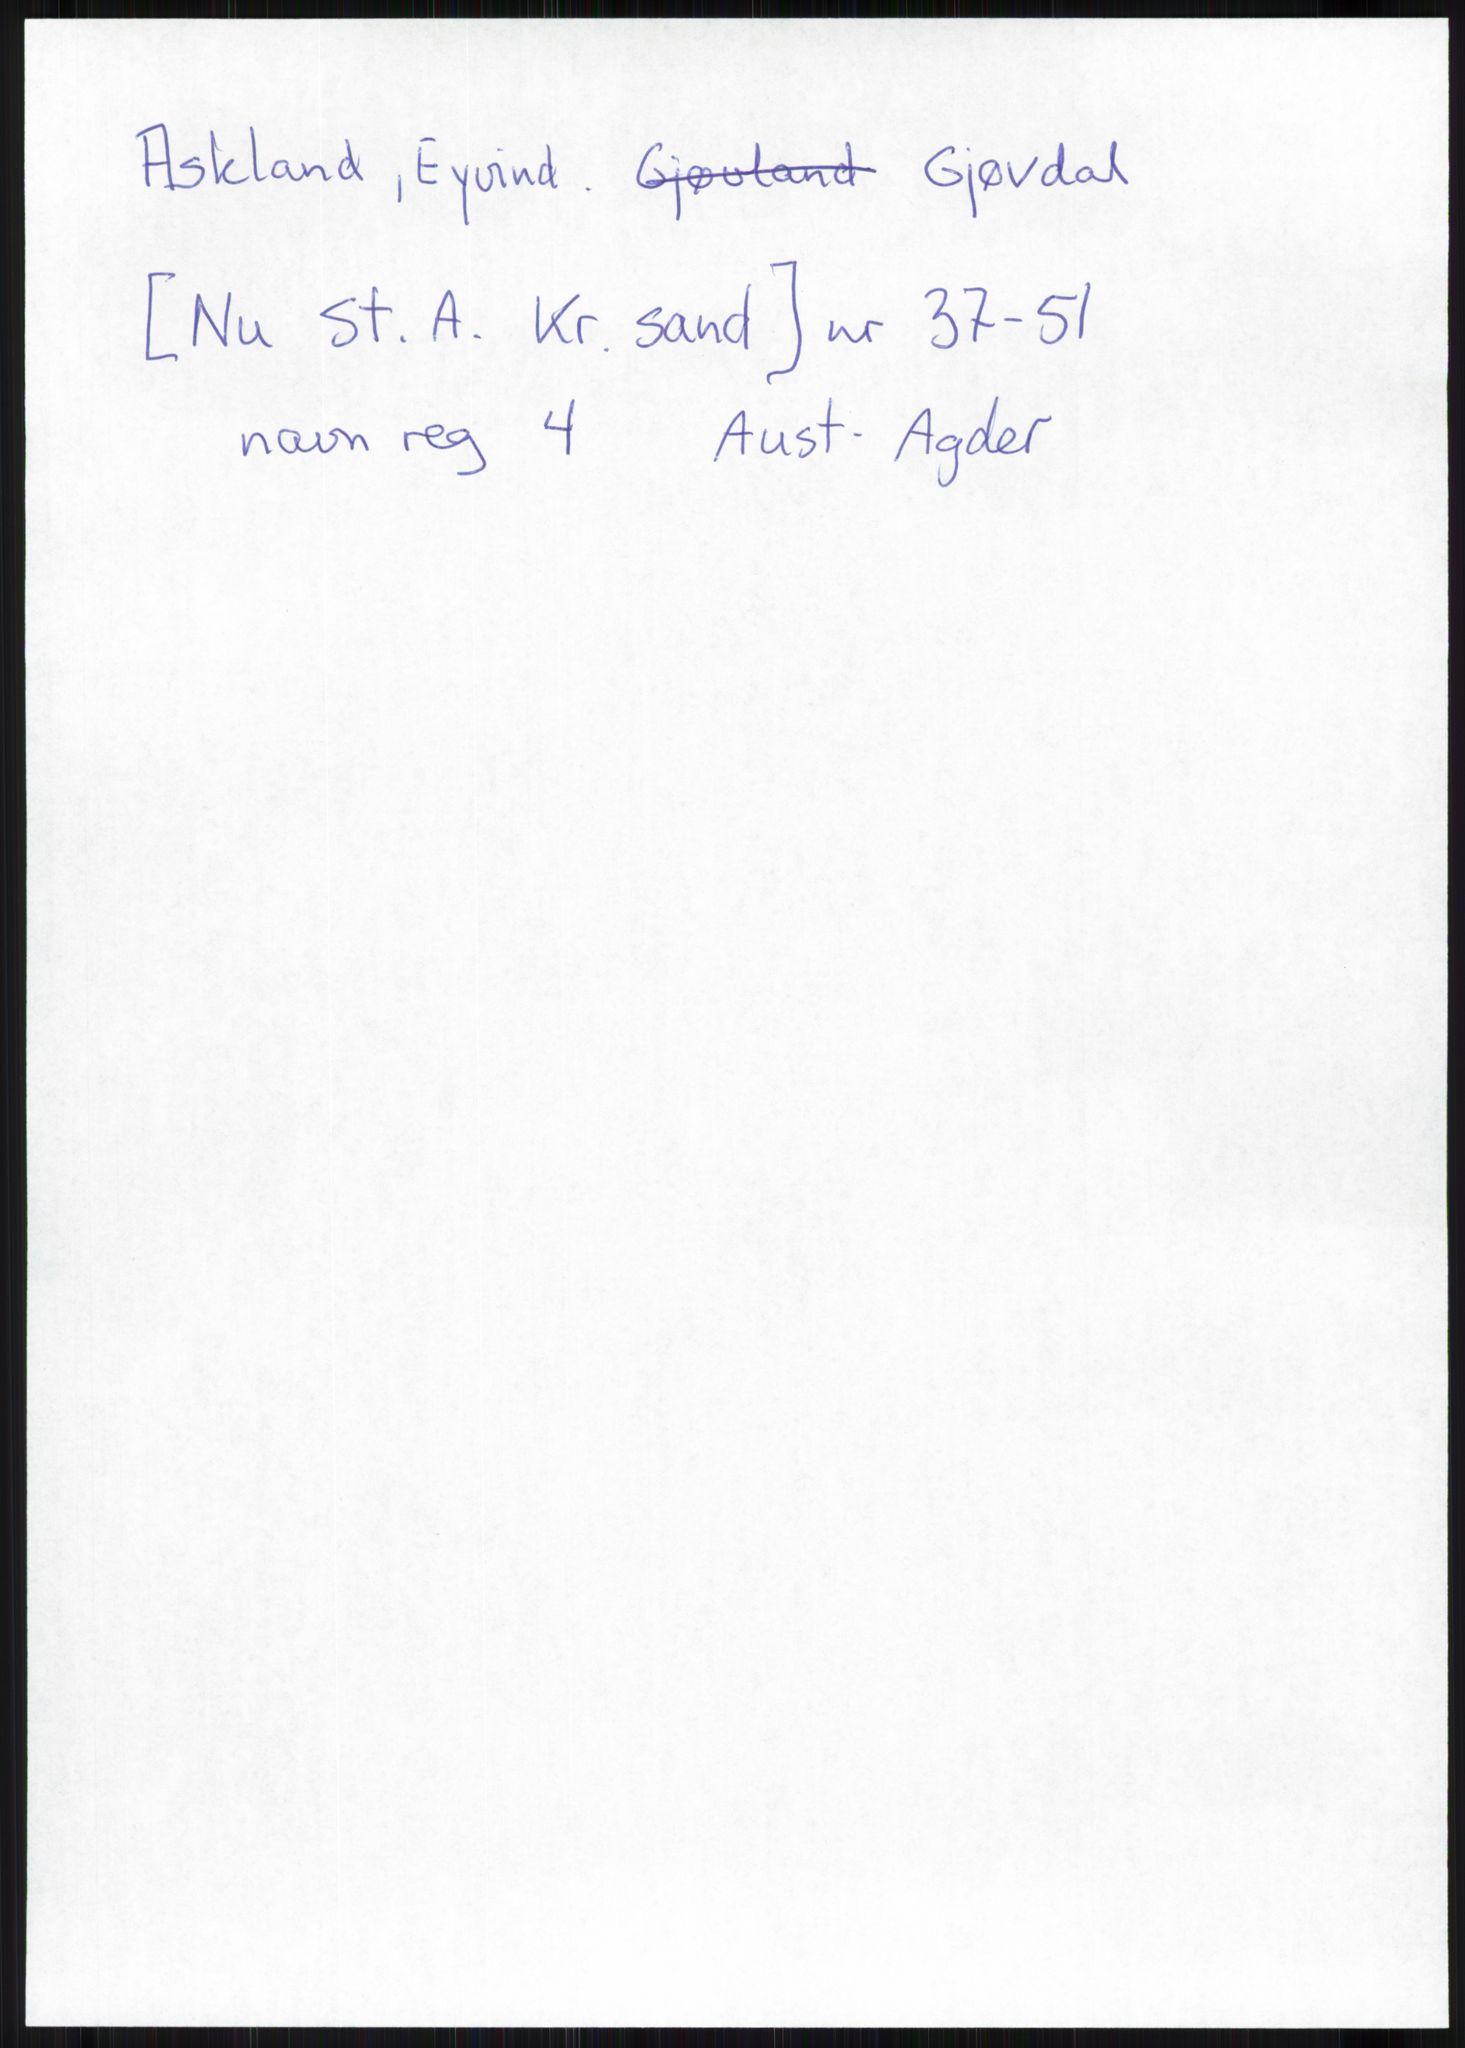 Askland, Eyvind. Gjøvland Gjøvdal
[Nu St. A. Kr. sand] nr 37-51
navn reg 4 Aust-Agder